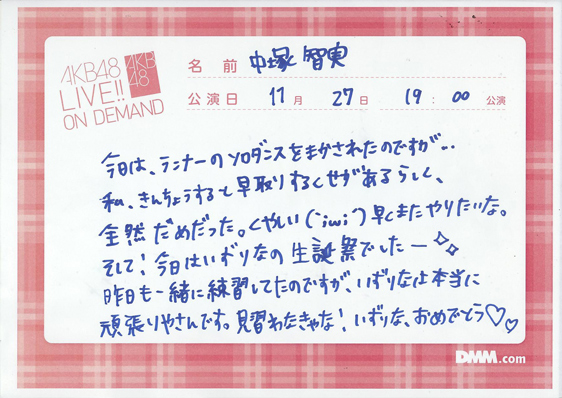 AKB48
LIVE!!
ON DEMAND
AKB
48
名 前 中塚 智実
公演日 11月 27日 19:00 公演
今日は、テンナーのソロダンスをまかされたのですが…
私、きんちょうすると早取りするくせがあるらしく、
全然だめだった。くやしい(´;ω;`)早くまたやりたいな。
そして!今日はいずりなの生誕祭でしたー✧✧
昨日も一緒に練習してたのですが、いずりなは本当に
頑張りやさんです。見習わなきゃな!いずりな、おめでとう♡♡
DMM.com